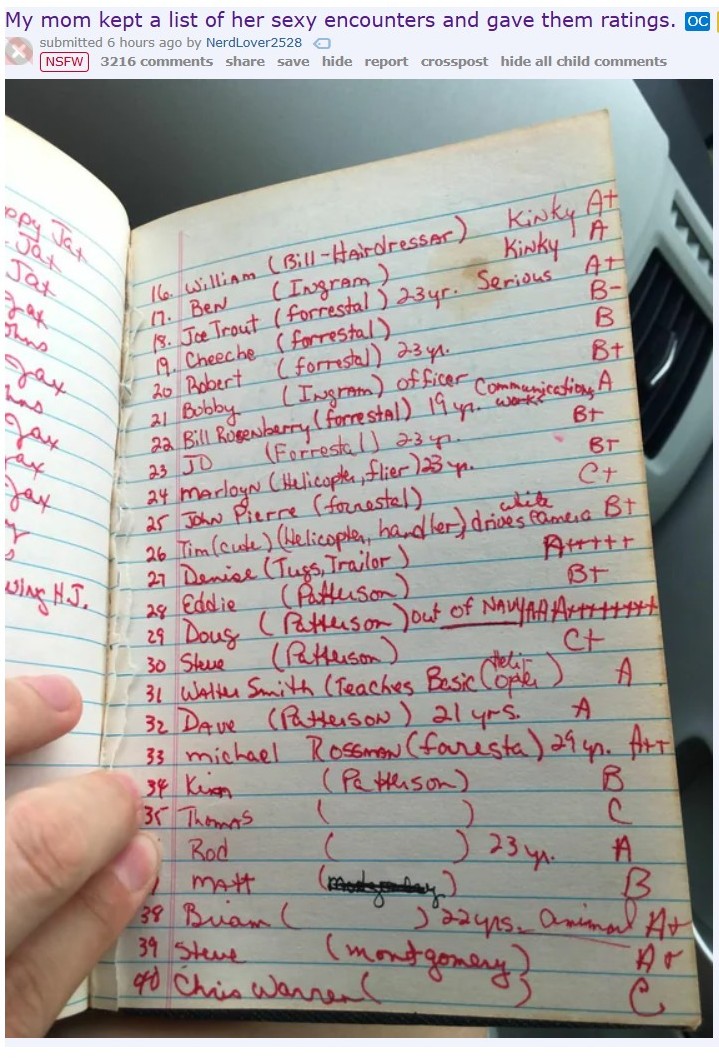 My mom kept a list of her sexy encounters and gave them ratings. OC
submitted 6 hours ago by NerdLover2528
NSFW 3216 comments share save hide report crosspost hide all child comments
ppy Jax
Jax
Jax
Jax
Jax
Jax
ax
Jax
wing H.J.
16. William (Bill-Hairdressar) Kinky A+
17. Ben (Ingram) Kinky A
18. Joe Trout (forrestal) 23yr. Serious A+
19. Cheeche (forrestal) B-
20 Robert (forrestal) 23 yr. B
21 Bobby (Ingram) officer B+
22 Bill Rosenberry (forrestal) 19 yr. works Communications A
23 JD (Forrestal) 23 yr. B+
24 Marloyn (Helicopter, flier) 23 yr. B+
25 John Pierre (forrestal) C+
26 Tim (cute) (Helicopter, handler) drives white Camera B+
27 Denise (Tugs, Trailor) A+++++
28 Eddie (Patterson) B+
29 Doug (Patterson) out of NAVY/AA A++++++++
30 Steve (Patterson) C+
31 Walter Smith (Teaches Basic Helicopter) A
32 Dave (Patterson) 21 yrs. A
33 michael Rossman (foresta) 29 yr. A++
34 (Patterson) B
35 Thomas ( ) C
Rod ( ) 23 yr. A
matt ( ) B
38 Brian ( ) 22 yrs. animal A+
39 Steve (montgomery) A+
40 Chris Warren ( ) C